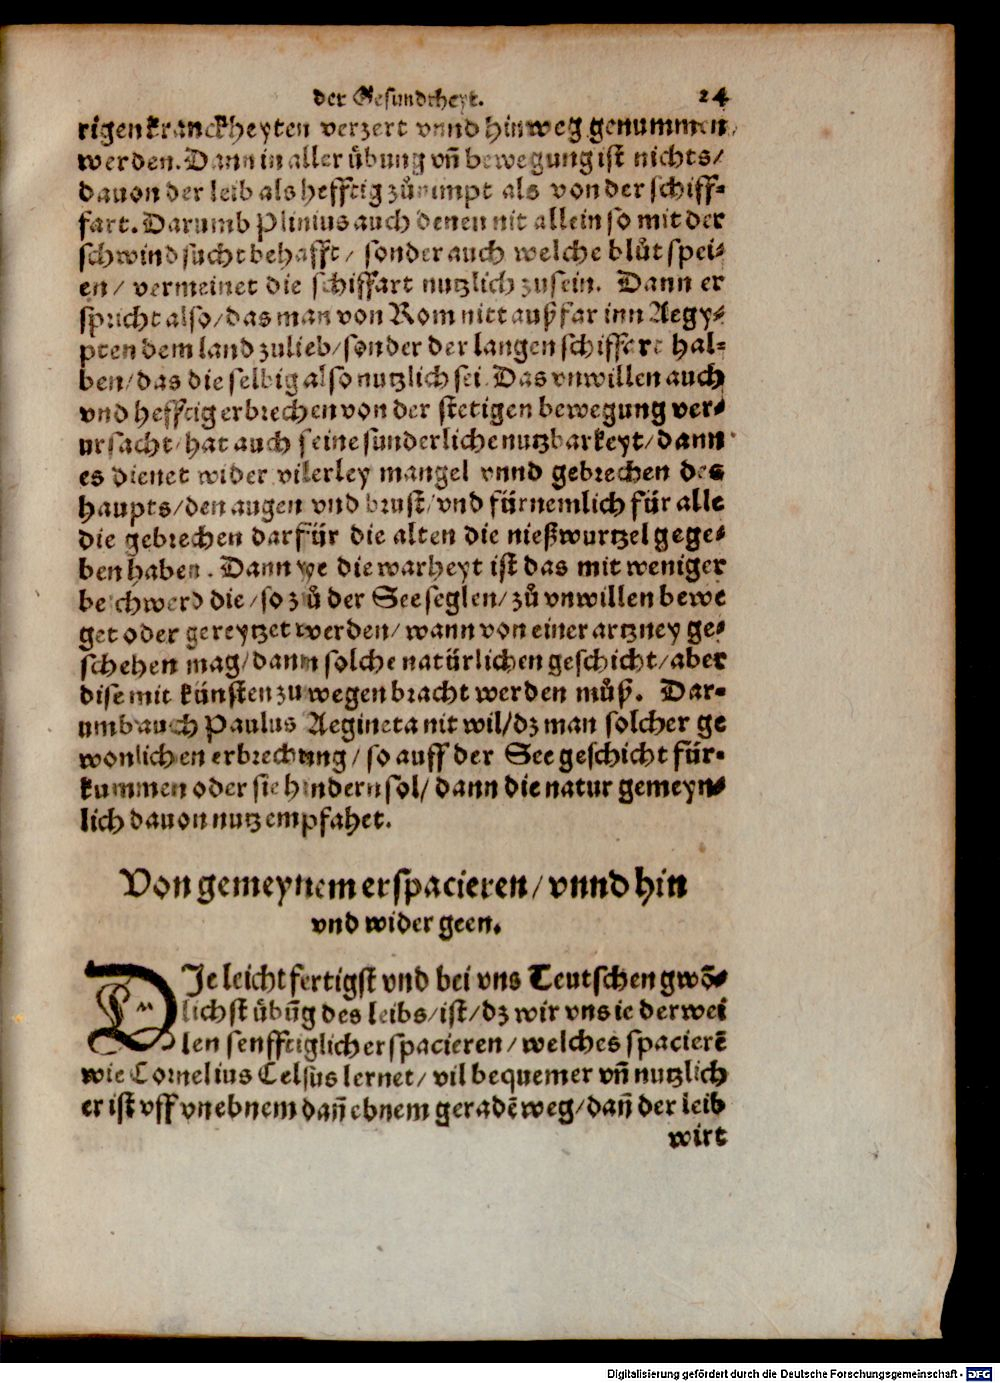 der Gesundtheyt. 24
rigen kranckheyten verzert vnnd hinweg genummen
werden. Dann in aller übung vñ bewegung ist nichts/
dauon der leib als hefftig zůnimpt als von der schiff-
fart. Darumb Plinius auch denen nit allein so mit der
schwindsucht behafft/ sonder auch welche blůt spei-
en/ vermeinet die schiffart nutzlich zusein. Dann er
spricht also/ das man von Rom nitt außfar inn Aegy-
pten dem land zulieb/ sonder der langen schiffart hal-
ben/ das die selbig also nutzlich sei. Das vnwillen auch
vnd hefftig erbrechen von der stetigen bewegung ver-
ursacht/ hat auch seine sunderliche nutzbarkeyt/ dann
es dienet wider vilerley mangel vnnd gebrechen des
haupts/ den augen vnd brust/ vnd fürnemlich für alle
die gebrechen darfür die alten die nießwurtzel gege-
ben haben. Dann ye die warheyt ist das mit weniger
beschwerd die/ so zů der See seglen/ zů vnwillen bewe
get oder gereytzet werden/ wann von einer artzney ge-
schehen mag/ dann solche natürlichen geschicht/ aber
dise mit künsten zu wegen bracht werden můß. Dar-
umb auch Paulus Aegineta nit wil/ dz man solcher ge
wonlichen erbrechung/ so auff der See geschicht für-
kummen oder sie hindern sol/ dann die natur gemeyn-
lich dauon nutz empfahet.
Von gemeynem erspacieren/ vnnd hin
vnd wider geen.
DIe leichtfertigst vnd bei vns Teutschen gwõ-
lichst übũg des leibs/ ist/ dz wir vns ie derwei
len senfftiglich erspacieren/ welches spacierẽ
wie Cornelius Celsus lernet/ vil bequemer vñ nutzlich
er ist vff vnebnem dañ ebnem geradẽ weg/ dañ der leib
wirt
Digitalisierung gefördert durch die Deutsche Forschungsgemeinschaft - DFG